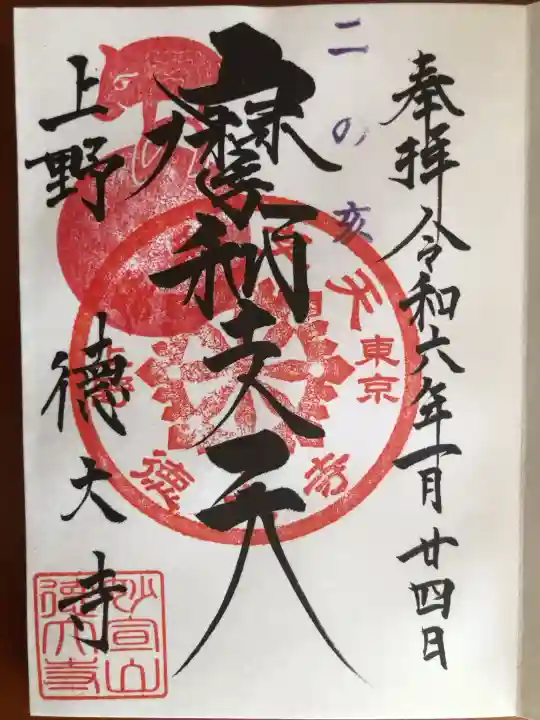 奉拝 令和六年一月廿四日
二の亥
摩利支天
上野 徳大寺
東京
妙宣山
徳大寺